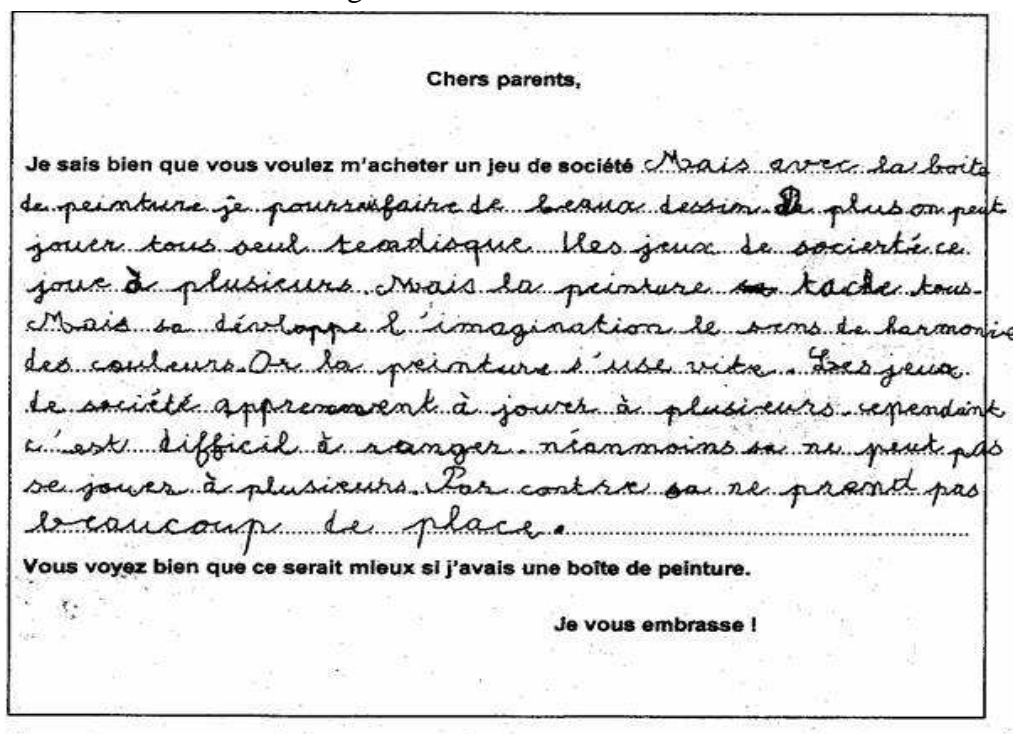 Chers parents,
Je sais bien que vous voulez m'acheter un jeu de société Mais avec la boite
de peinture je pourrai faire de beaux dessin De plus on peut
jouer tous seul tendisque les jeux de socierté ce
joue à plusieurs. Mais la peinture sa tache tous.
Mais sa dévloppe l'imagination le sens de harmonie
des couleurs. Or la peinture s'use vite. Les jeux
de société apprennent à jouer à plusieurs. cependant
c'est difficil à ranger. néanmoins sa ne peut pas
se jouer à plusieurs. Par contre sa ne prend pas
beaucoup de place.
Vous voyez bien que ce serait mieux si j'avais une boîte de peinture.
Je vous embrasse !